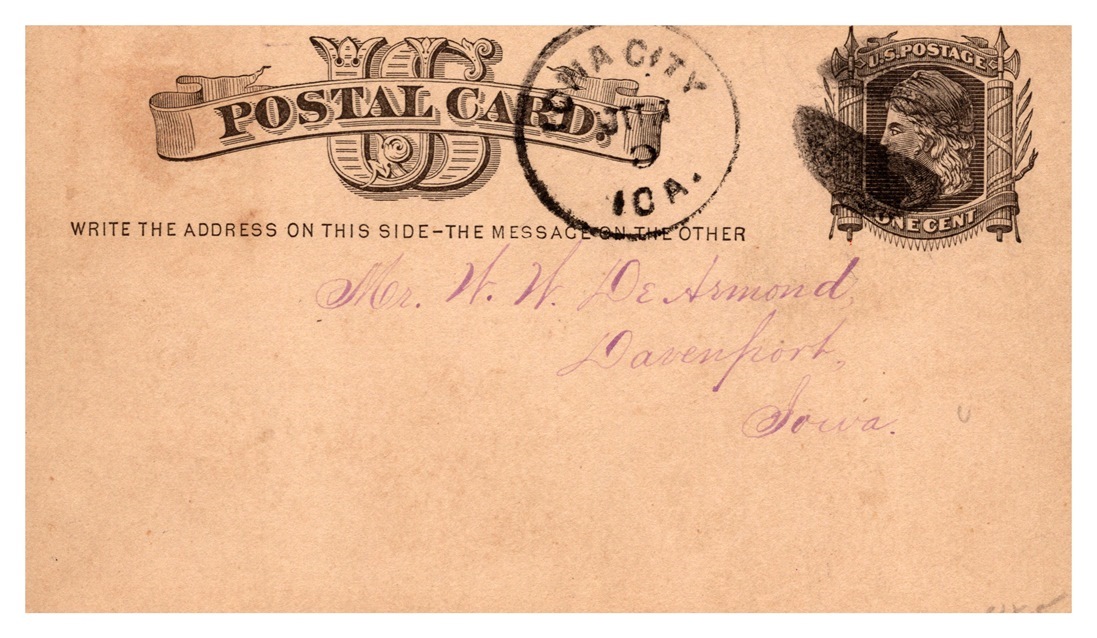 US
POSTAL CARD.
IOWA CITY
IOA.
U.S. POSTAGE
ONE CENT
WRITE THE ADDRESS ON THIS SIDE-THE MESSAGE ON THE OTHER
Mr. W. W. DeArmond,
Davenport,
Iowa.